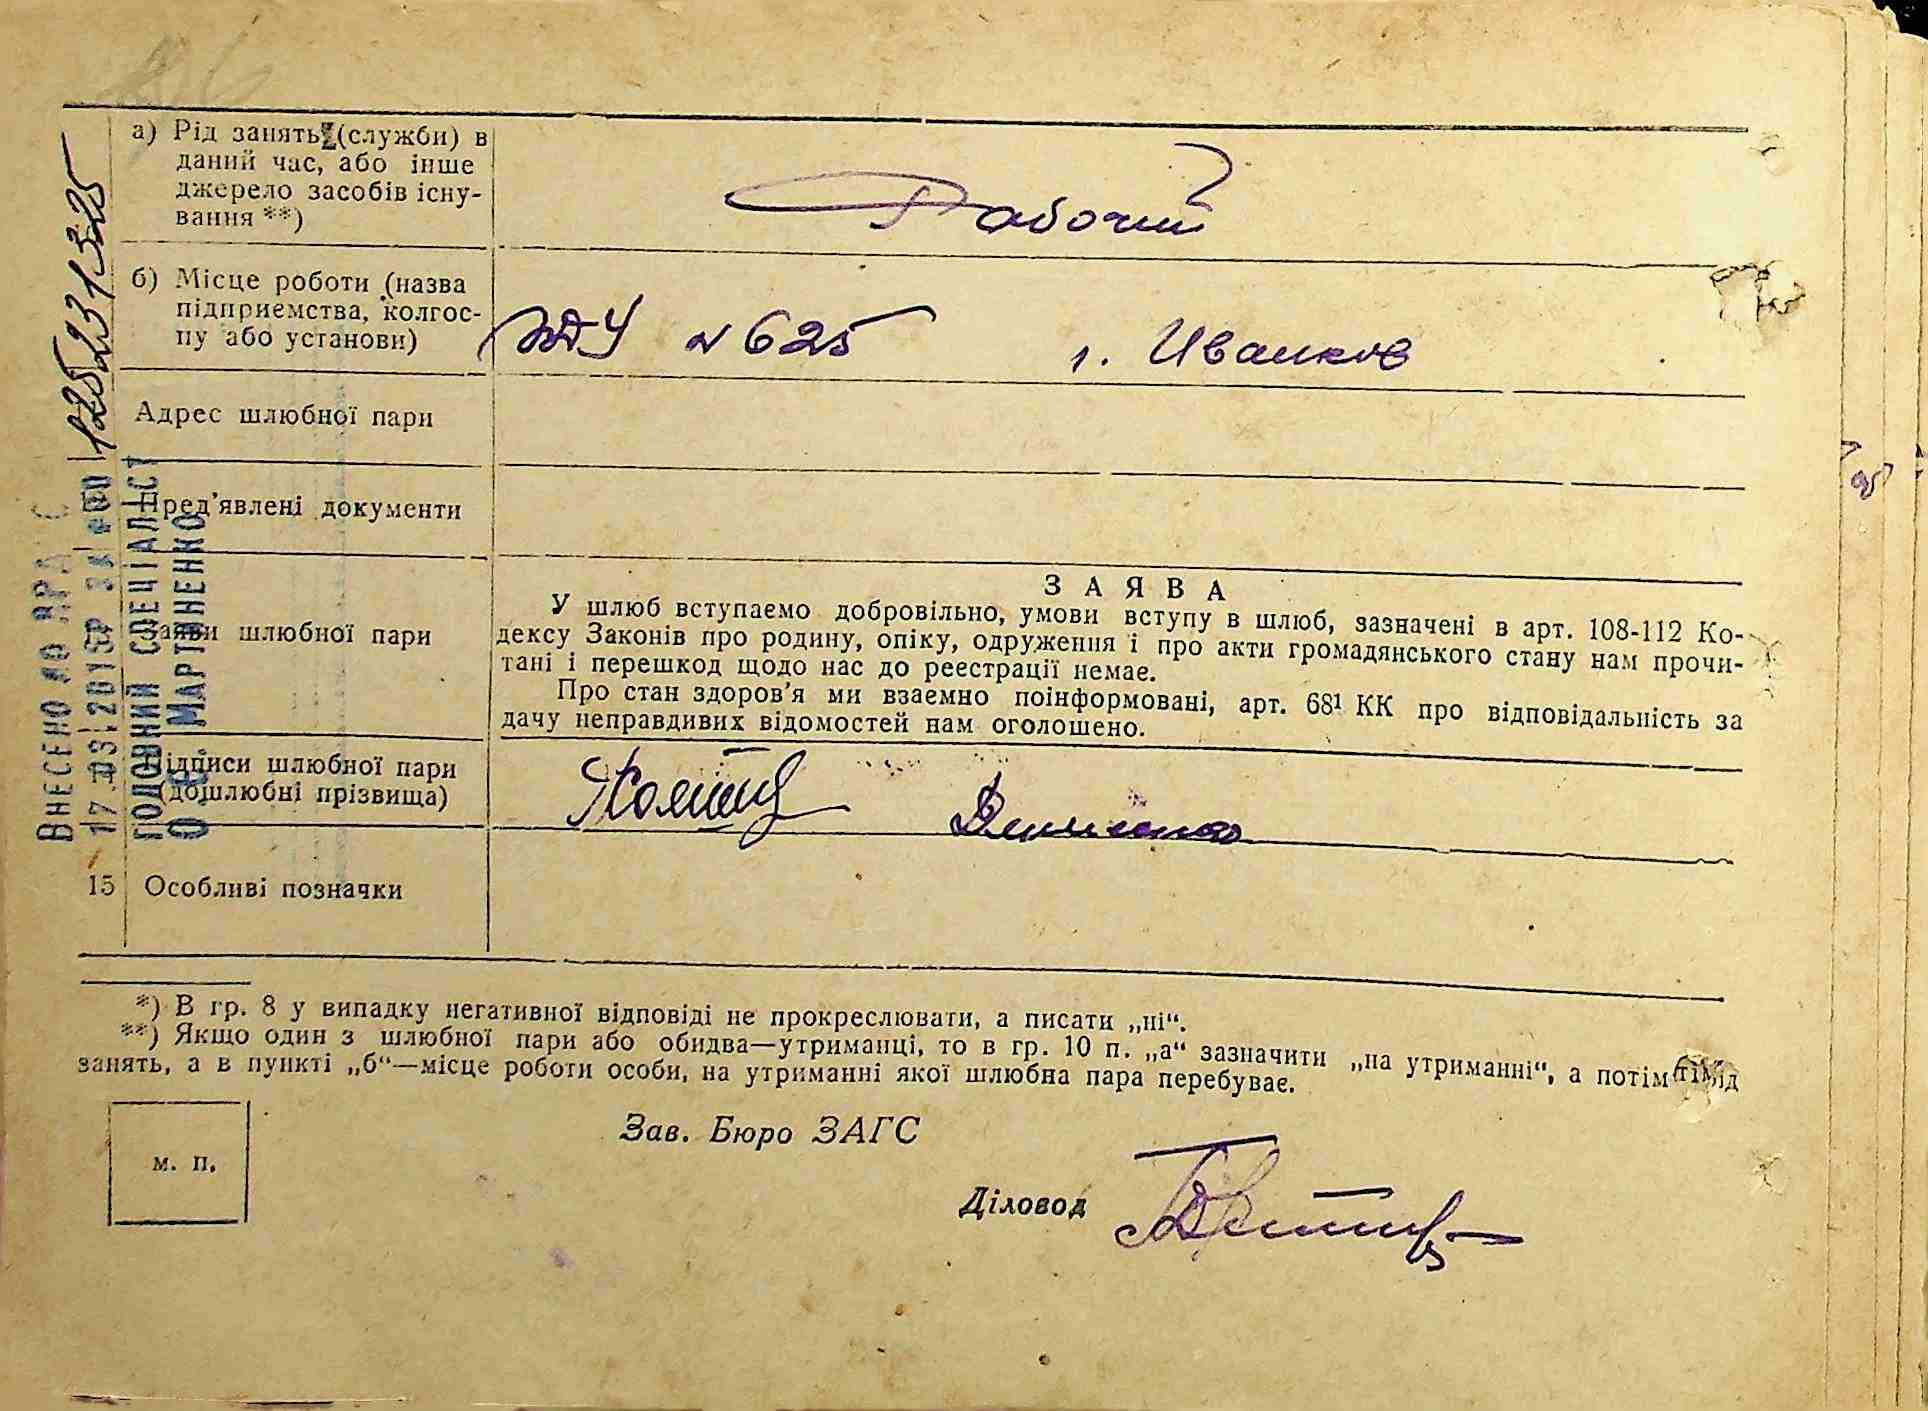 а) Рід занять (служби) в
даний час, або інше
джерело засобів існу-
вання **)
Рабочий
б) Місце роботи (назва
підприємства, колгос-
пу або установи)
№ 625 г. Иванков
Адрес шлюбної пари
Пред'явлені документи
Заяви шлюбної пари
ЗАЯВА
У шлюб вступаємо добровільно, умови вступу в шлюб, зазначені в арт. 108-112 Ко-
дексу Законів про родину, опіку, одруження і про акти громадянського стану нам прочи-
тані і перешкод щодо нас до реєстрації немає.
Про стан здоров'я ми взаємно поінформовані, арт. 68¹ КК про відповідальність за
дачу неправдивих відомостей нам оголошено.
Підписи шлюбної пари
(дошлюбні прізвища)
15 Особливі позначки
*) В гр. 8 у випадку негативної відповіді не прокреслювати, а писати „ні“.
**) Якщо один з шлюбної пари або обидва—утриманці, то в гр. 10 п. „а“ зазначити „на утриманні“, а потім рід
занять, а в пункті „б“—місце роботи особи, на утриманні якої шлюбна пара перебуває.
Зав. Бюро ЗАГС
м. п.
Діловод
ВНЕСЕНО ДО
ГОЛОВНИЙ СПЕЦІАЛІСТ
МАРТИНЕНКО